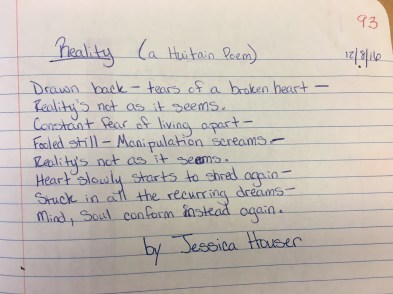 93
Reality (a Huitain Poem)
12/8/16
Drawn back - tears of a broken heart -
Reality's not as it seems.
Constant fear of living apart -
Fooled still - Manipulation screams -
Reality's not as it seems.
Heart slowly starts to shred again -
Stuck in all the recurring dreams -
Mind, Soul conform instead again.
by Jessica Houser